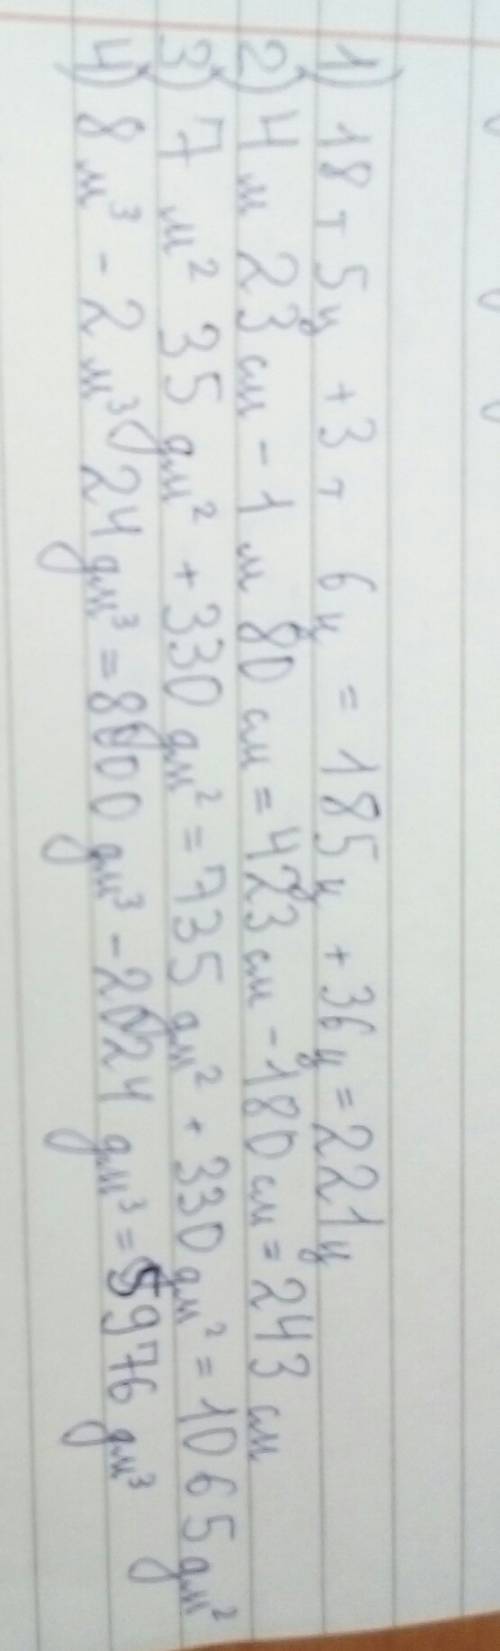 1) 18 т 5ц + 3 т 6 ц = 185 ц + 36 ц = 221 ц
2) 4 м 23 см - 1 м 80 см = 423 см - 180 см = 243 см
3) 7 м² 35 дм² + 330 дм² = 735 дм² + 330 дм² = 1065 дм²
4) 8 м³ - 2 м³ 24 дм³ = 8000 дм³ - 2024 дм³ = 5976 дм³